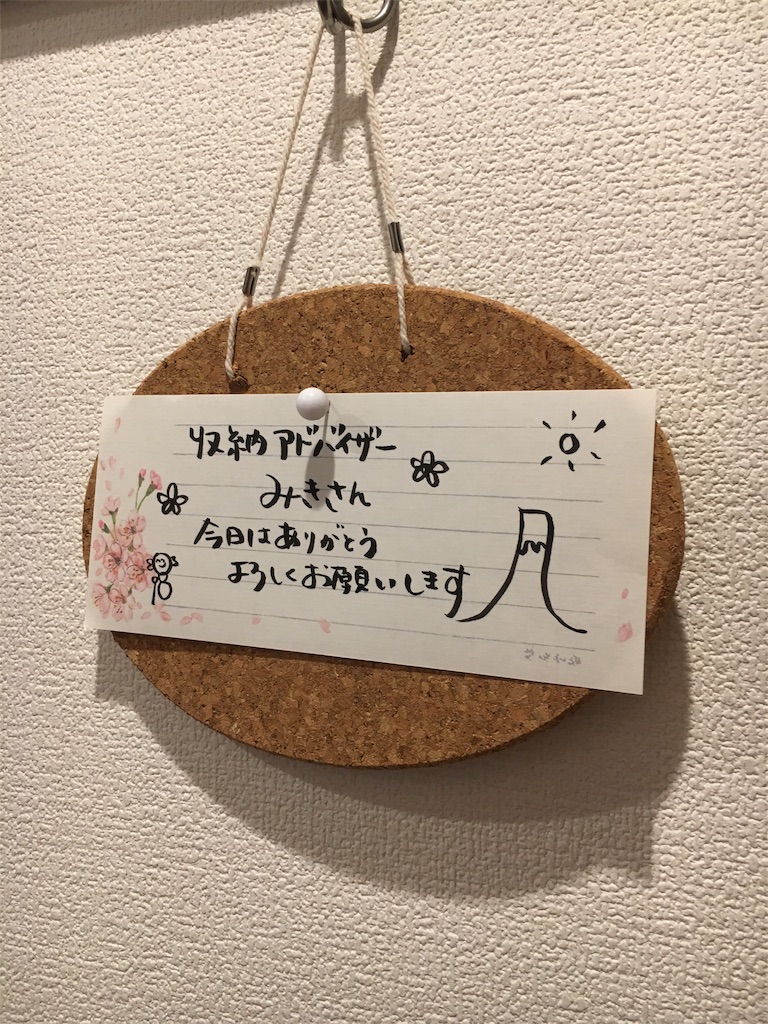 収納アドバイザー
みきさん
今日はありがとう
よろしくお願いします